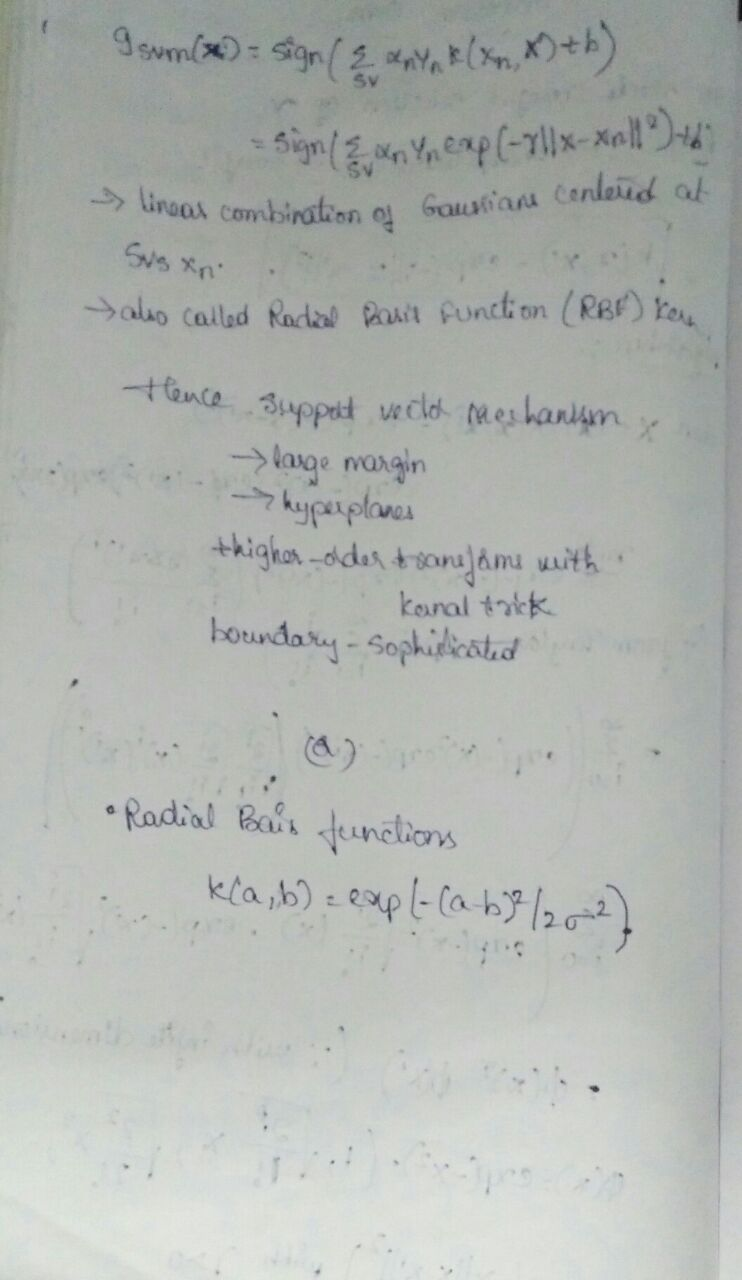 g svm(x) = sign( Σ αn yn K(xn, x) + b)
SV
= sign( Σ αn yn exp(-γ||x-xn||²)+b
SV
→ linear combination of Gaussians centered at
SVs xn.
→ also called Radial Basis Function (RBF) Ker
Hence support vector mechanism
→ large margin
→ hyperplanes
+ higher-order transforms with
kernal trick
boundary - sophisticated
(a)
• Radial Bais functions
K(a,b) = exp(-(a-b)²/2σ²)